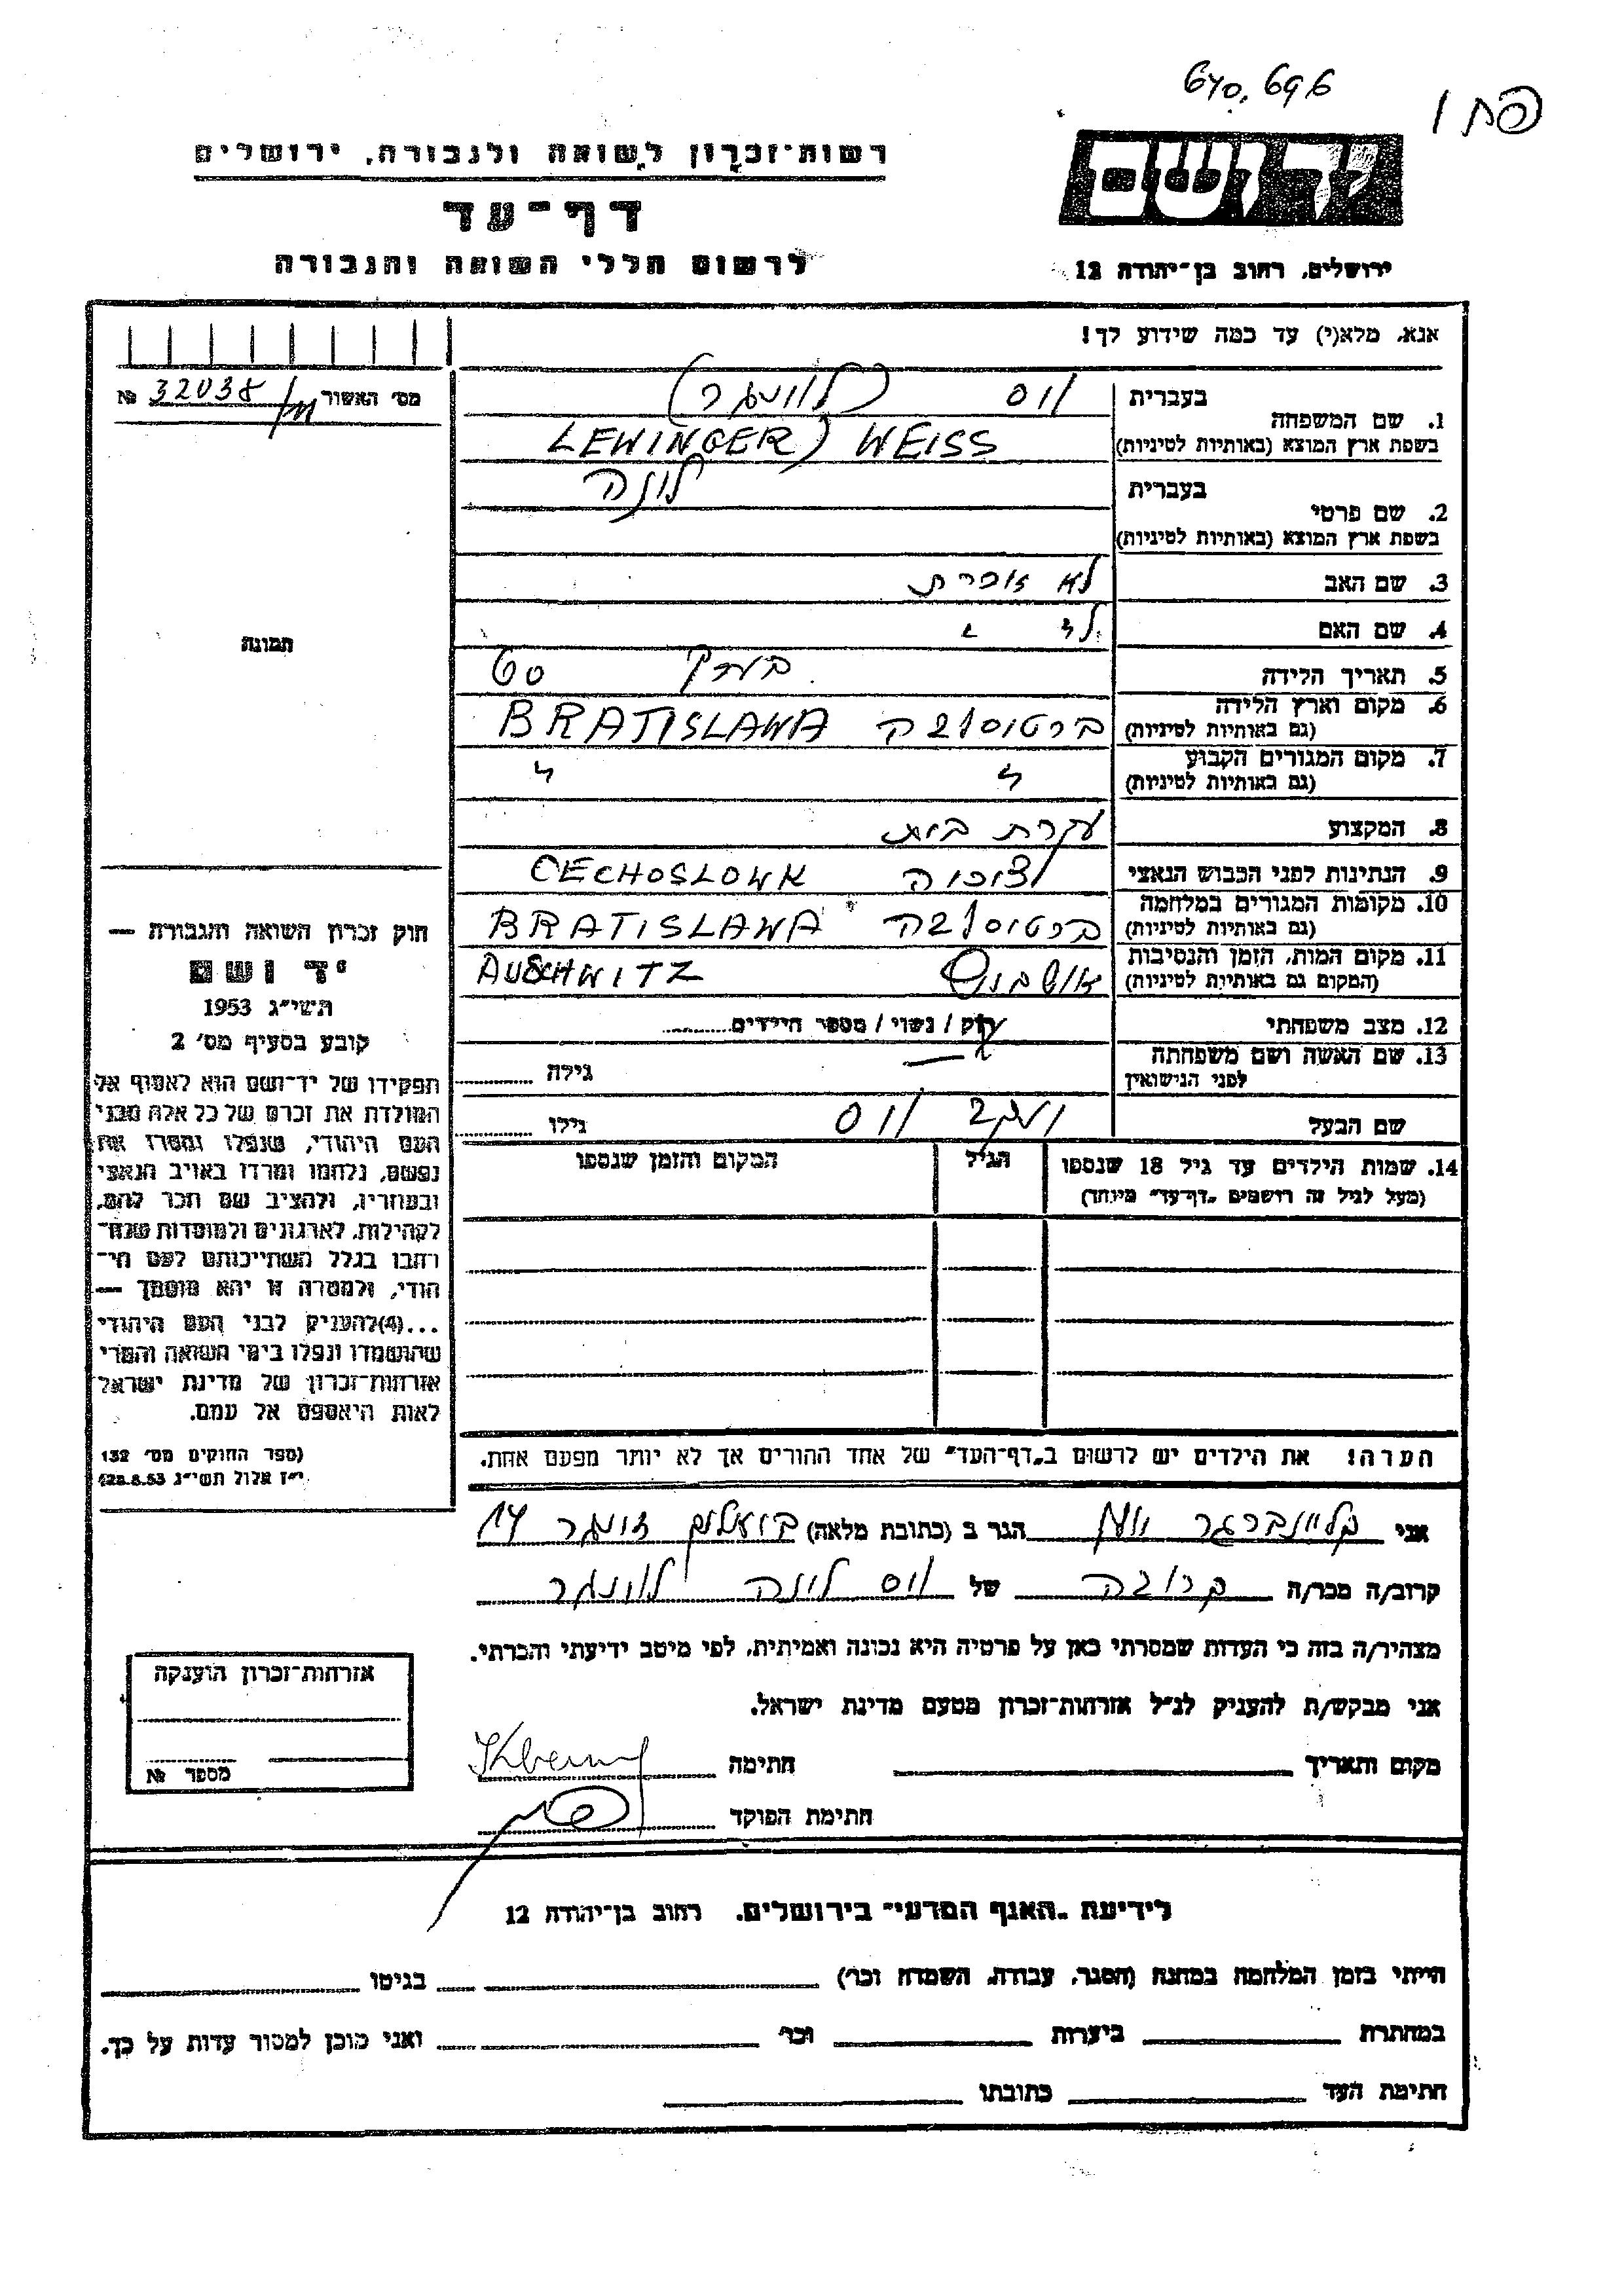 640,696
יד ושם
ירושלים, רחוב בן־יהודה 12
רשות־זכרון לשואה ולגבורה, ירושלים
דף־עד
לרשום חללי השואה והגבורה
אנא, מלא(י) עד כמה שידוע לך!
מס׳ האשור 32038 №
1. שם המשפחה
בעברית וייס (לווינגר)
בשפת ארץ המוצא (באותיות לטיניות) LEWINGER) WEISS
2. שם פרטי
בעברית
בשפת ארץ המוצא (באותיות לטיניות)
3. שם האב לא זוכרת
4. שם האם
5. תאריך הלידה בערך 60
6. מקום וארץ הלידה ברטיסלבה BRATISLAWA
(גם באותיות לטיניות)
7. מקום המגורים הקבוע
(גם באותיות לטיניות)
8. המקצוע עקרת בית
9. הנתינות לפני הכבוש הנאצי CECHOSLOWA
10. מקומות המגורים במלחמה ברטיסלבה BRATISLAWA
(גם באותיות לטיניות)
11. מקום המות, הזמן והנסיבות AUSCHWITZ
(המקום גם באותיות לטיניות)
12. מצב משפחתי רוק / נשוי / מספר הילדים
13. שם האשה ושם משפחתה
לפני הנישואין גילה
שם הבעל יעקב וייס גילו
14. שמות הילדים עד גיל 18 שנספו
(מעל לגיל זה רושמים „דף־עד" מיוחד)
הגיל
המקום והזמן שנספו
הערה! את הילדים יש לרשום ב„דף־העד" של אחד ההורים אך לא יותר מפעם אחת.
תמונה
חוק זכרון השואה והגבורה —
יד ושם
תשי״ג 1953
קובע בסעיף מס׳ 2
תפקידו של יד־ושם הוא לאסוף אל
המולדת את זכרם של כל אלה מבני
העם היהודי, שנפלו ומסרו את
נפשם, נלחמו ומרדו באויב הנאצי
ובעוזריו, ולהציב שם וזכר להם,
לקהילות, לארגונים ולמוסדות שנח־
רבו בגלל השתייכותם לעם הי־
הודי, ולמטרה זו יהא מוסמך —
...(4)להעניק לבני העם היהודי
שהושמדו ונפלו בימי השואה והמרי
אזרחות־זכרון של מדינת ישראל
לאות היאספם אל עמם.
(ספר החוקים מס׳ 132
י״ז אלול תשי״ג 28.8.53)
אני הגר ב (כתובת מלאה) 14
קרוב/ה מכר/ה קרובה של וייס לווינגר
מצהיר/ה בזה כי העדות שמסרתי כאן על פרטיה היא נכונה ואמיתית, לפי מיטב ידיעתי והכרתי.
אני מבקש/ת להעניק לנ״ל אזרחות־זכרון מטעם מדינת ישראל.
מקום ותאריך חתימה
חתימת הפוקד
אזרחות־זכרון הוענקה
מספר №
לידיעת „האגף המדעי" בירושלים, רחוב בן־יהודה 12
הייתי בזמן המלחמה במחנה (הסגר, עבודה, השמדה וכו׳) בגיטו
במחתרת ביערות וכו׳ ואני מוכן למסור עדות על כך.
חתימת העד כתובתו